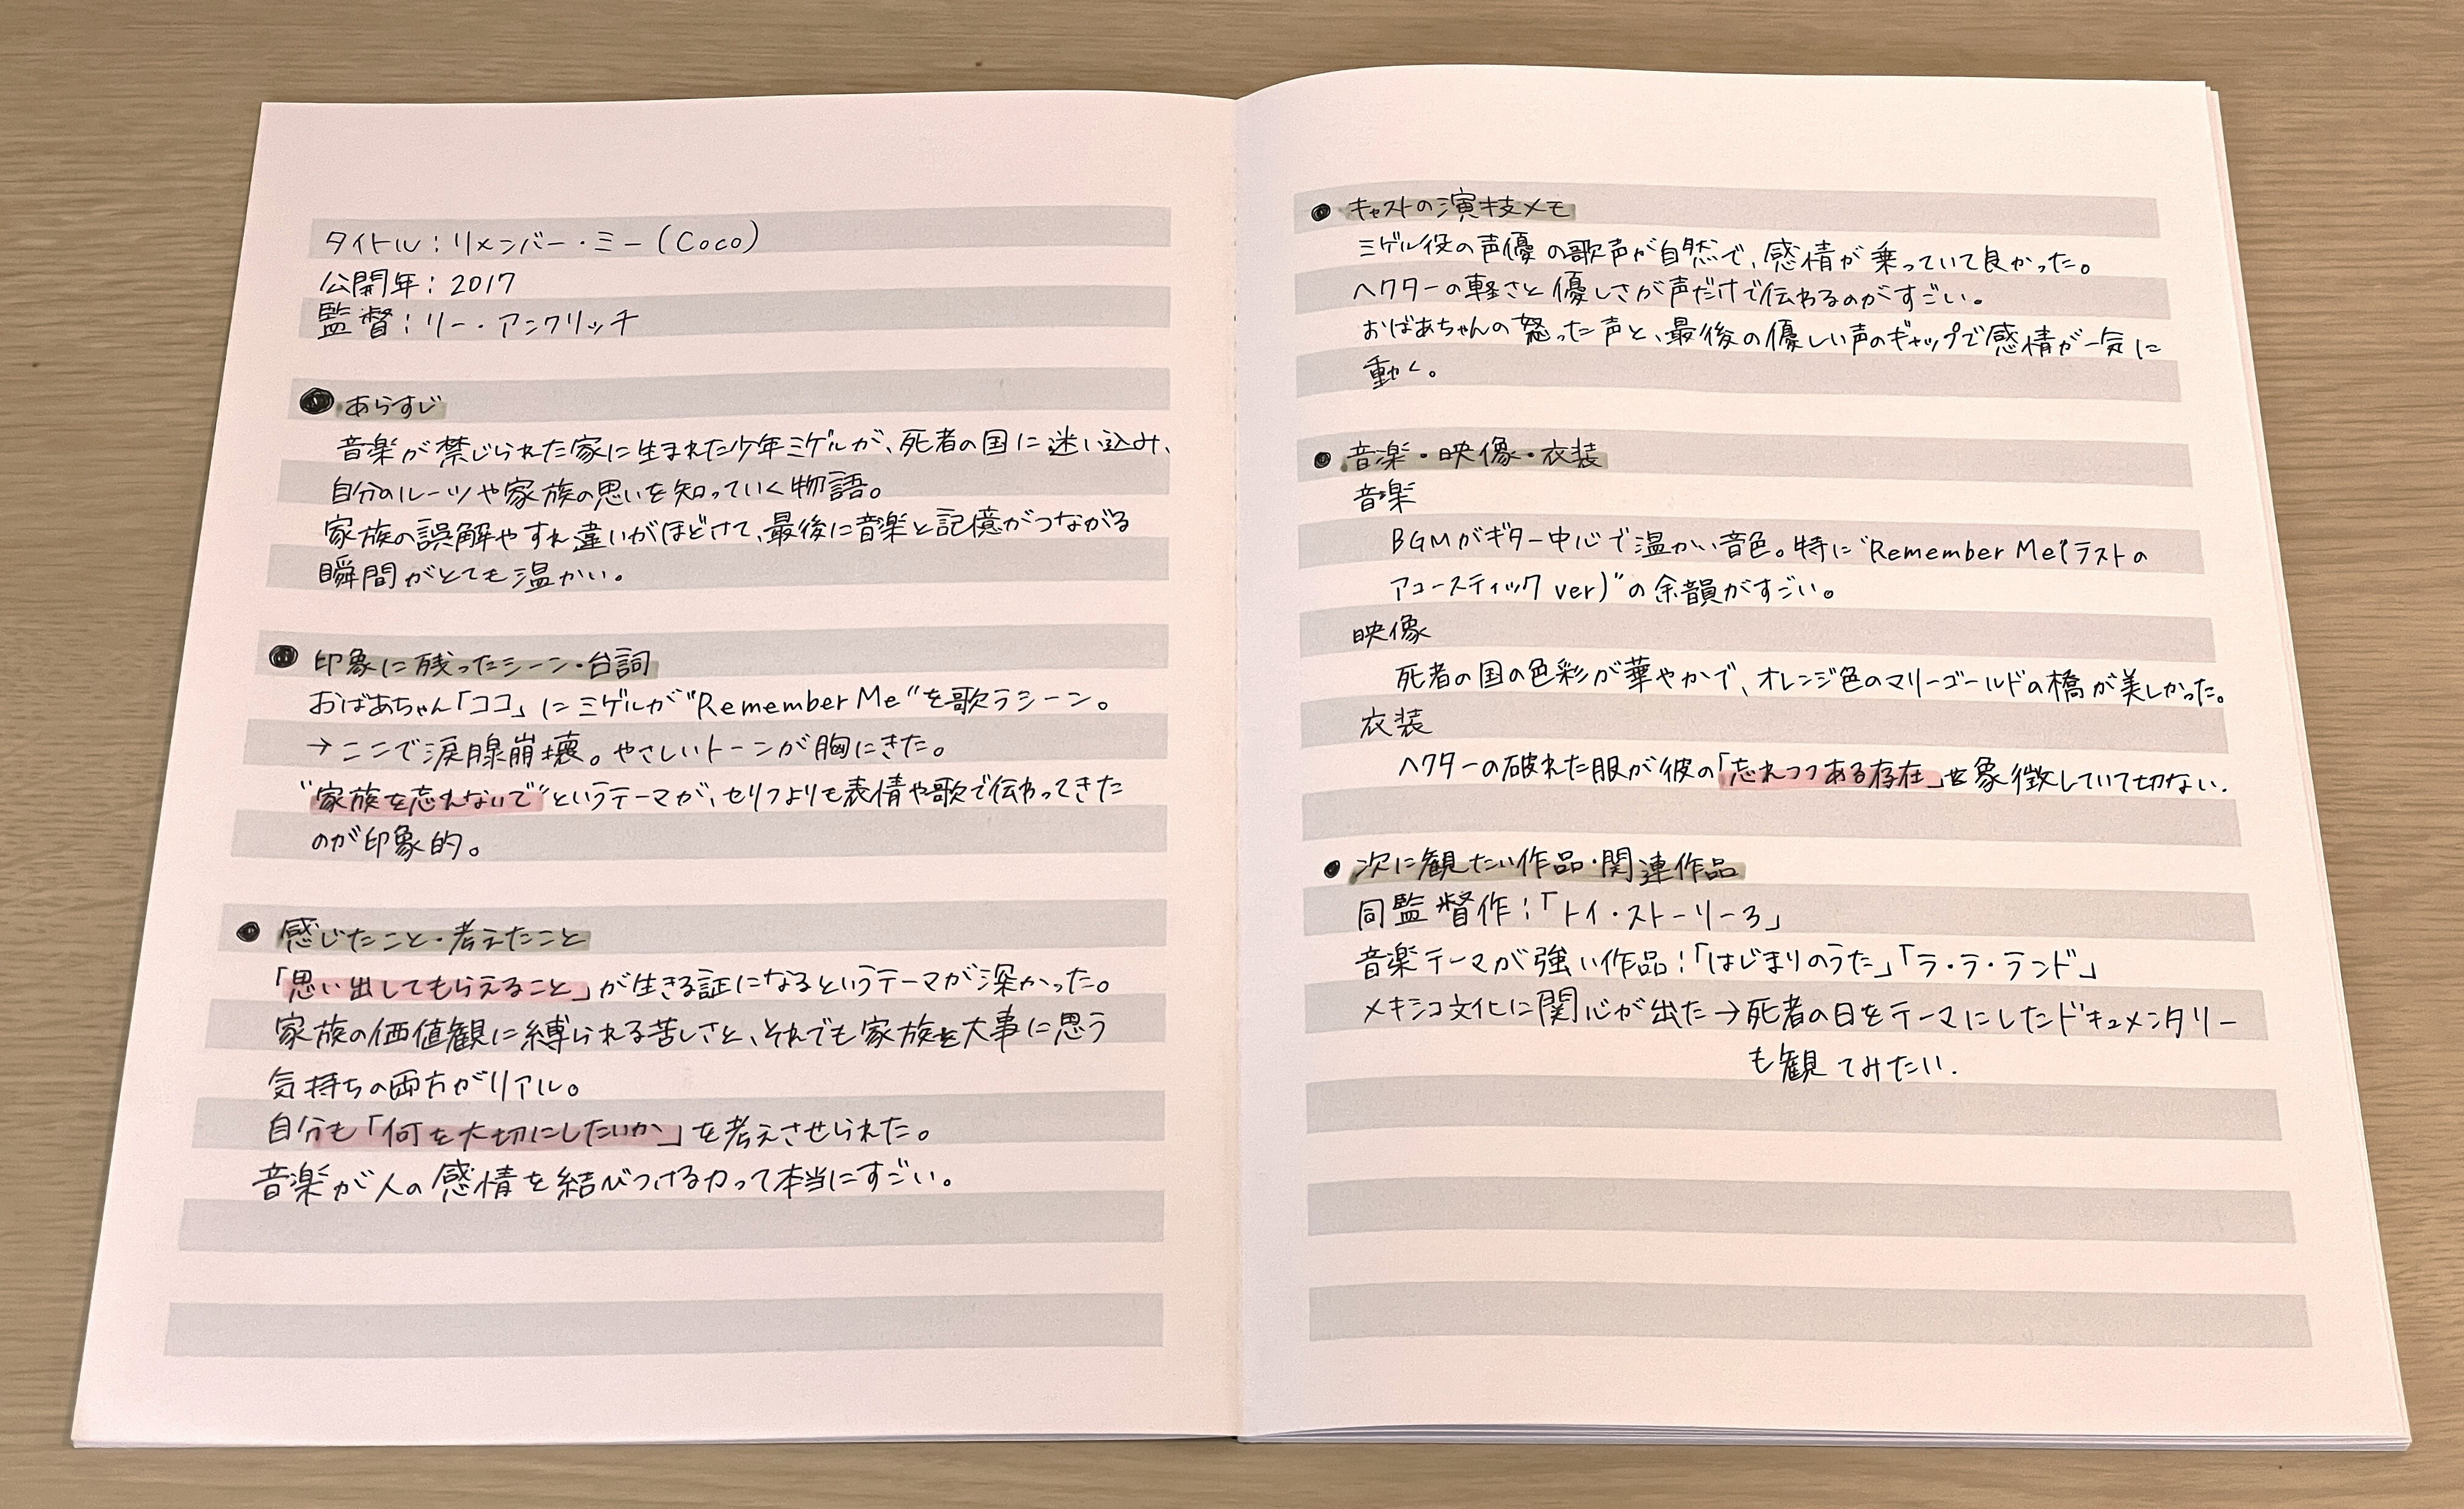 タイトル：リメンバー・ミー（Coco）
公開年：2017
監督：リー・アンクリッチ
● あらすじ
音楽が禁じられた家に生まれた少年ミゲルが、死者の国に迷い込み、
自分のルーツや家族の思いを知っていく物語。
家族の誤解やすれ違いがほどけて、最後に音楽と記憶がつながる
瞬間がとても温かい。
● 印象に残ったシーン・台詞
おばあちゃん「ココ」にミゲルが"Remember Me"を歌うシーン。
→ここで涙腺崩壊。やさしいトーンが胸にきた。
"家族を忘れないで"というテーマが、セリフよりも表情や歌で伝わってきた
のが印象的。
● 感じたこと・考えたこと
「思い出してもらえること」が生きる証になるというテーマが深かった。
家族の価値観に縛られる苦しさと、それでも家族を大事に思う
気持ちの両方がリアル。
自分も「何を大切にしたいか」を考えさせられた。
音楽が人の感情を結びつける力って本当にすごい。
● キャストの演技メモ
ミゲル役の声優の歌声が自然で、感情が乗っていて良かった。
ヘクターの軽さと優しさが声だけで伝わるのがすごい。
おばあちゃんの怒った声と、最後の優しい声のギャップで感情が一気に
動く。
● 音楽・映像・衣装
音楽
BGMがギター中心で温かい音色。特に"Remember Me(ラストの
アコースティックver)"の余韻がすごい。
映像
死者の国の色彩が華やかで、オレンジ色のマリーゴールドの橋が美しかった。
衣装
ヘクターの破れた服が彼の「忘れつつある存在」を象徴していて切ない.
● 次に観たい作品・関連作品
同監督作：「トイ・ストーリー3」
音楽テーマが強い作品：「はじまりのうた」「ラ・ラ・ランド」
メキシコ文化に関心が出た→死者の日をテーマにしたドキュメンタリー
も観てみたい.